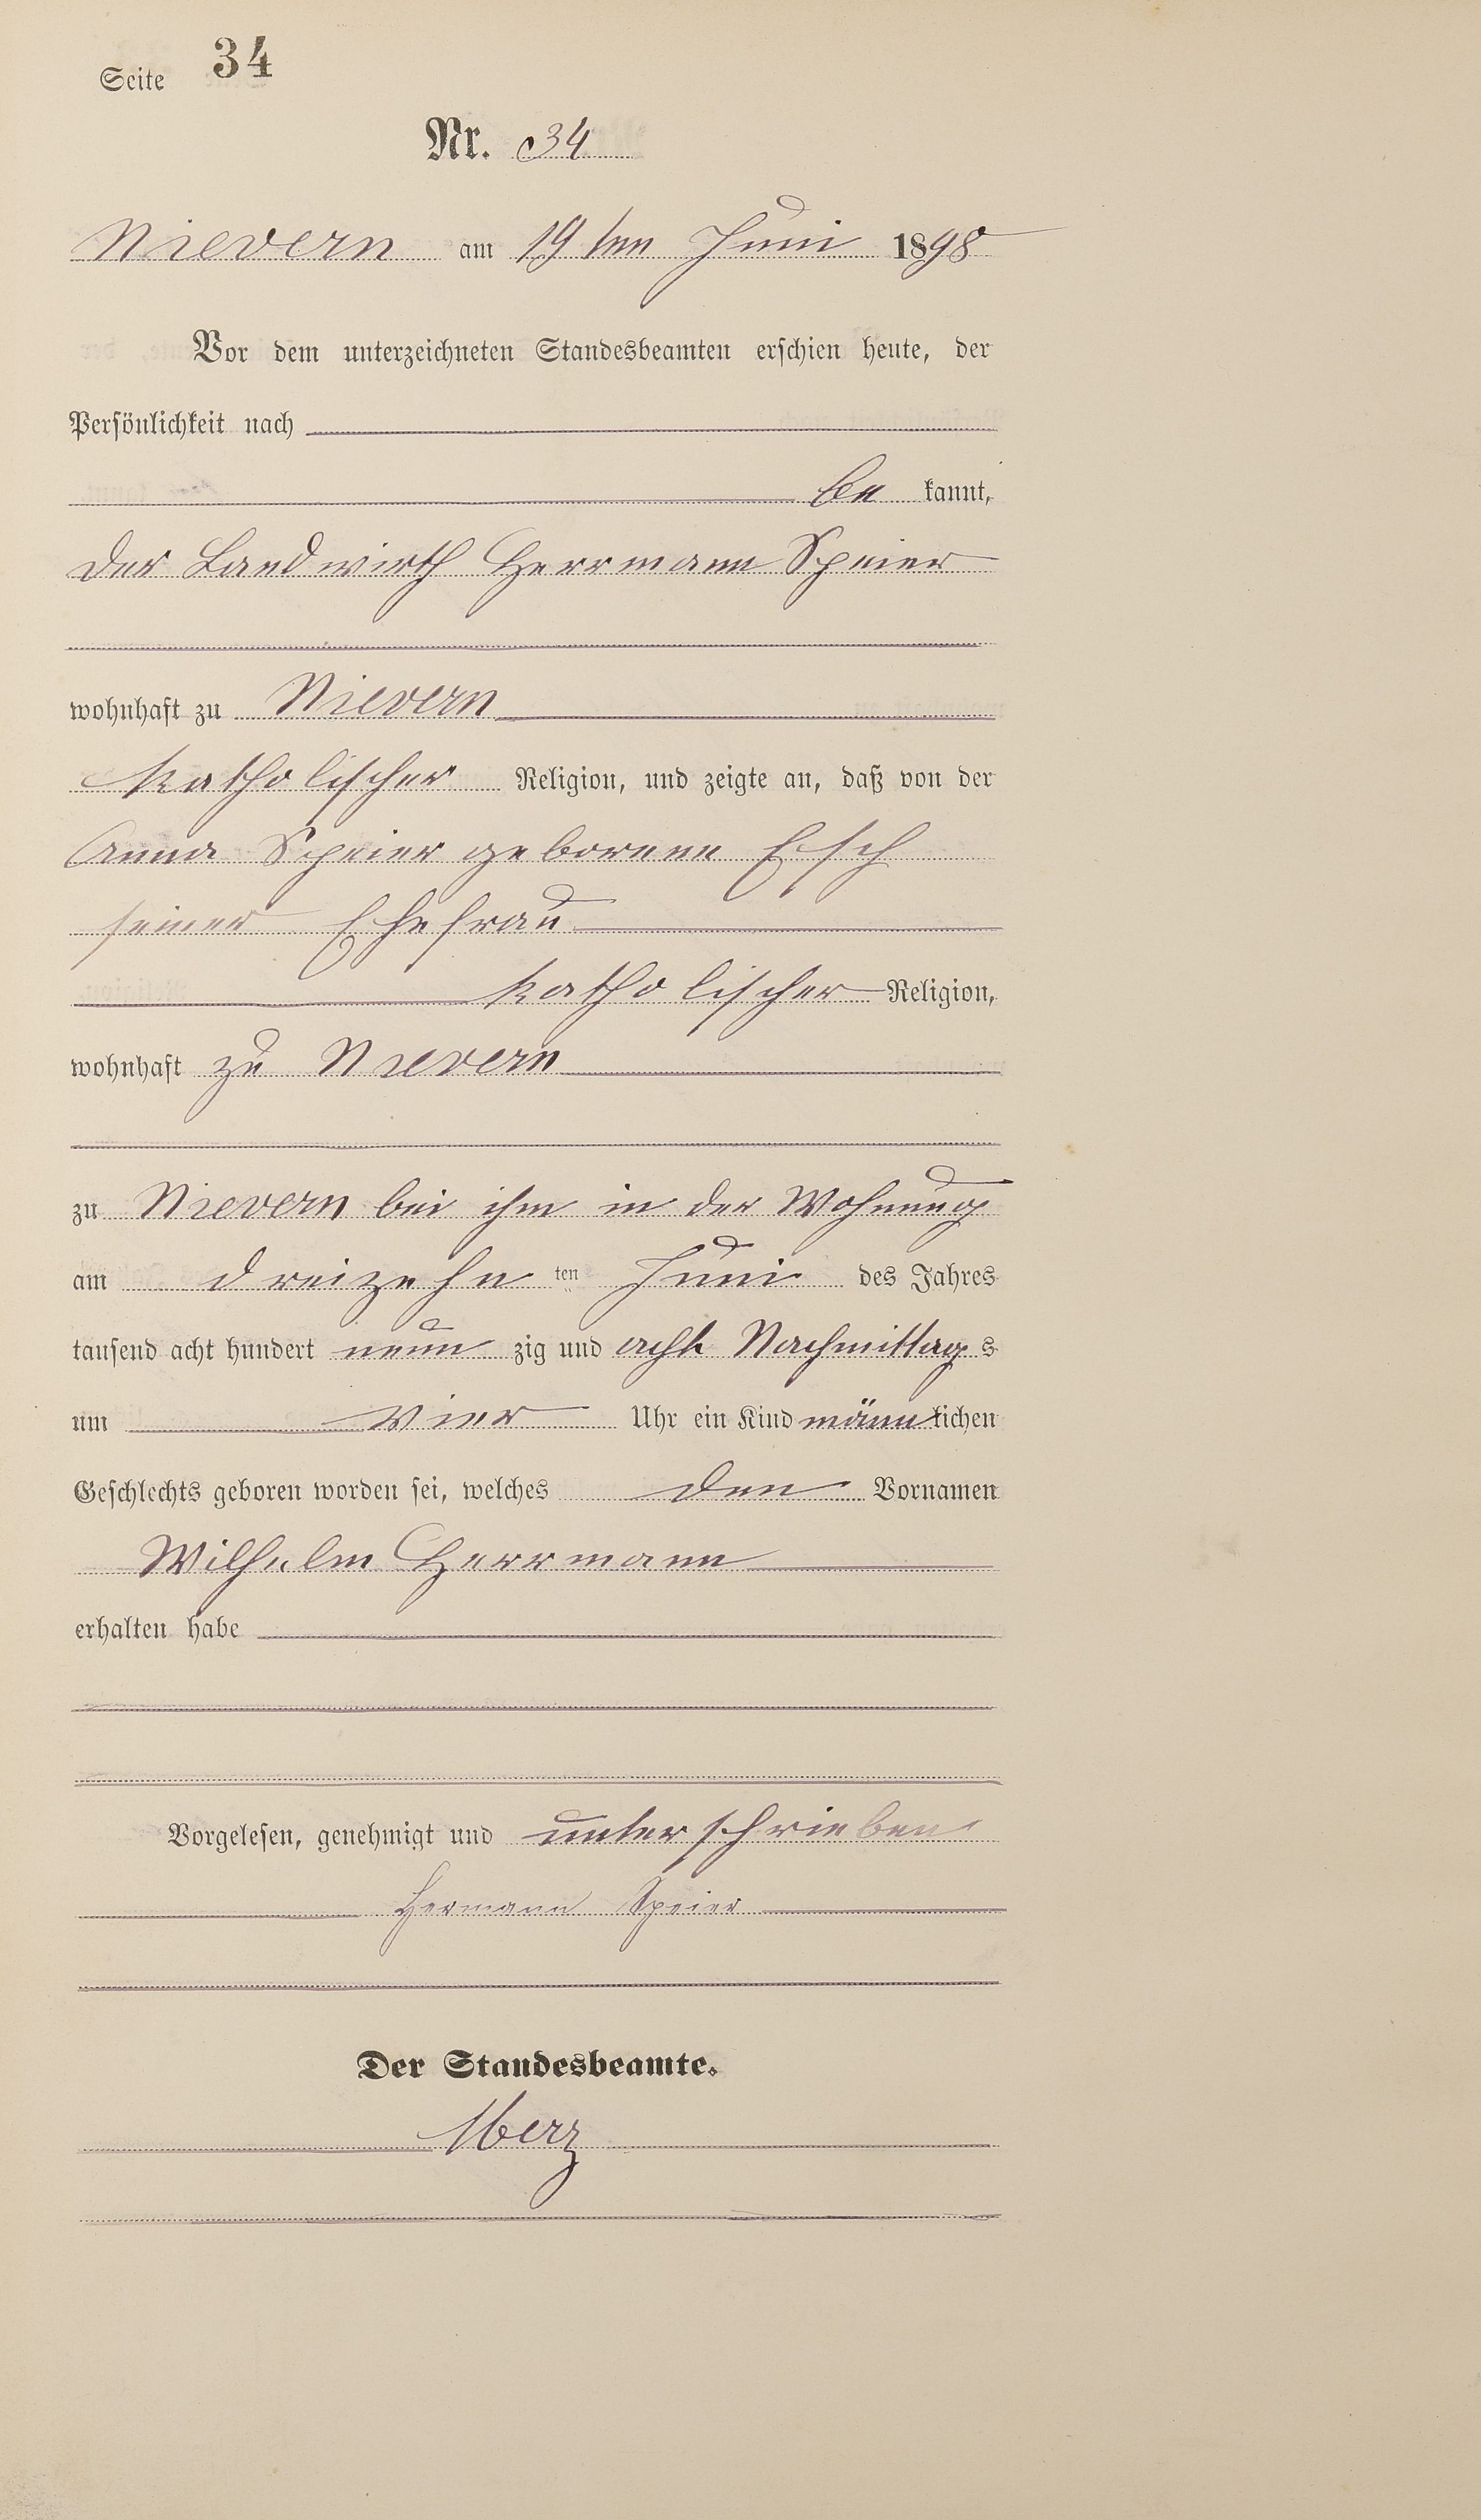 Seite 34
Nr. 34
Nievern am 19ten Juni 1898
Vor dem unterzeichneten Standesbeamten erschien heute, der
Persönlichkeit nach
be kannt,
der Landwirth Herrmann Speier
wohnhaft zu Nievern
katholischer Religion, und zeigte an, daß von der
Anna Speier geborene Esch
seiner Ehefrau
katholischer Religion,
wohnhaft zu Nievern
zu Nievern bei ihm in der Wohnung
am dreizehn ten Juni des Jahres
tausend acht hundert neun zig und acht Nachmittag s
um vier Uhr ein Kind männlichen
Geschlechts geboren worden sei, welches den Vornamen
Wilhelm Herrmann
erhalten habe
Vorgelesen, genehmigt und unterschrieben
Hermann Speier
Der Standesbeamte.